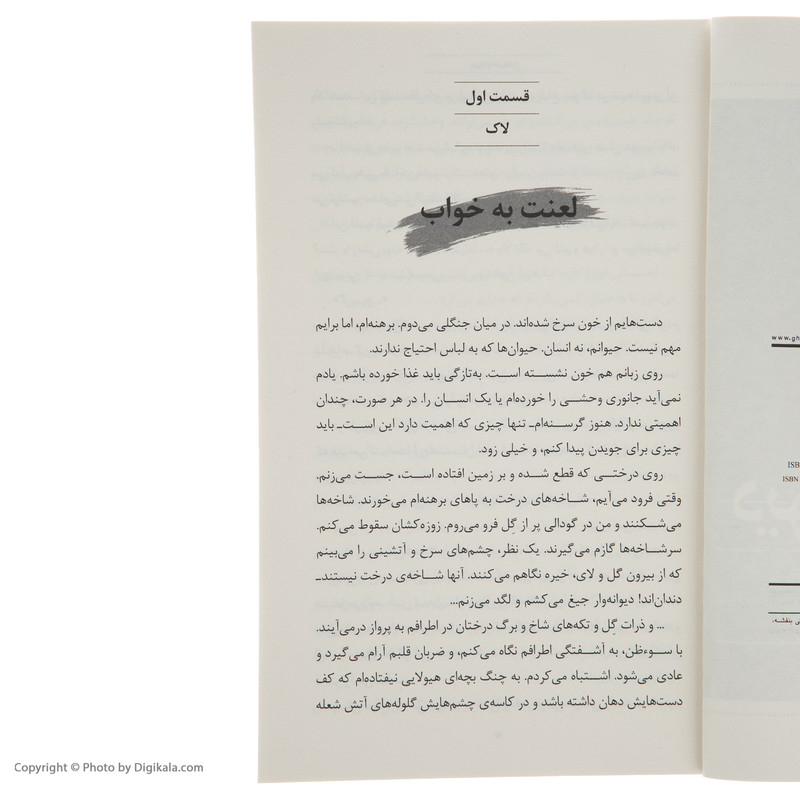 قسمت اول
لاک
لعنت به خواب
دست‌هایم از خون سرخ شده‌اند. در میان جنگلی می‌دوم. برهنه‌ام، اما برایم
مهم نیست. حیوانم، نه انسان. حیوان‌ها که به لباس احتیاج ندارند.
روی زبانم هم خون نشسته است. به‌تازگی باید غذا خورده باشم. یادم
نمی‌آید جانوری وحشی را خورده‌ام یا یک انسان را. در هر صورت، چندان
اهمیتی ندارد. هنوز گرسنه‌ام۔ تنها چیزی که اهمیت دارد این است۔ باید
چیزی برای جویدن پیدا کنم، و خیلی زود.
روی درختی که قطع شده و بر زمین افتاده است، جست می‌زنم.
وقتی فرود می‌آیم، شاخه‌های درخت به پاهای برهنه‌ام می‌خورند. شاخه‌ها
می‌شکنند و من در گودالی پر از گِل فرو می‌روم. زوزه‌کشان سقوط می‌کنم.
سرشاخه‌ها گازم می‌گیرند. یک نظر، چشم‌های سرخ و آتشینی را می‌بینم
که از بیرون گل و لای، خیره نگاهم می‌کنند. آنها شاخه‌ی درخت نیستند۔
دندان‌اند! دیوانه‌وار جیغ می‌کشم و لگد می‌زنم...
... و ذرات گِل و تکه‌های شاخ و برگ درختان در اطرافم به پرواز درمی‌آیند.
با سوءظن، به آشفتگی اطرافم نگاه می‌کنم، و ضربان قلبم آرام می‌گیرد و
عادی می‌شود. اشتباه می‌کردم. به چنگ بچه‌ای هیولایی نیفتاده‌ام که کف
دست‌هایش دهان داشته باشد و در کاسه‌ی چشم‌هایش گلوله‌های آتش شعله
www.gh
ISB
ISBN
بنفشه.
Copyright © Photo by Digikala.com